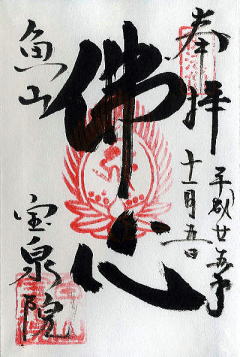 奉拝
平成廿五年
十一月五日
佛心
魚山
宝泉院